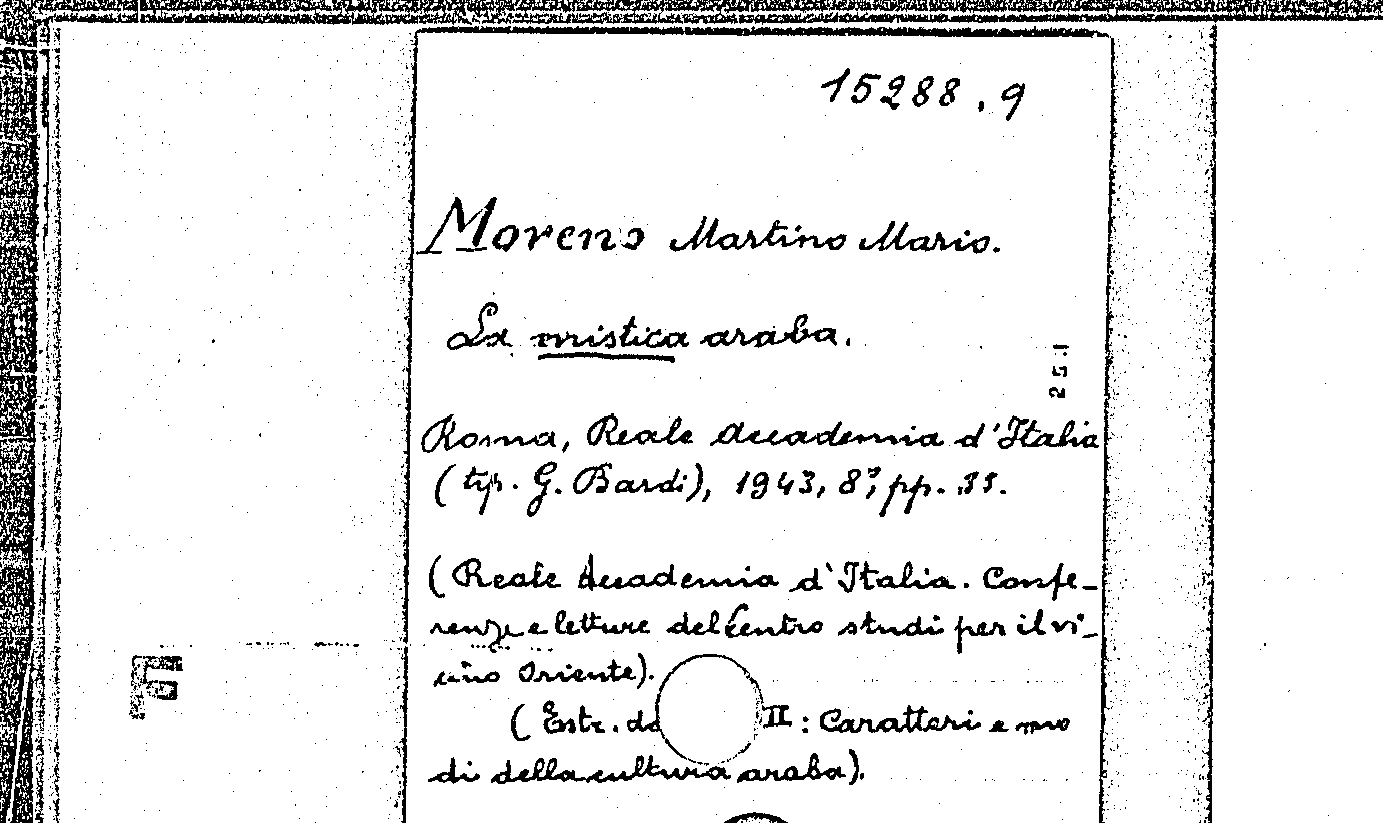 15288.9
Moreno Martino Mario.
La mistica araba.
251
Roma, Reale Accademia d'Italia
(tip. G. Bardi), 1943, 8°, pp. 33.
(Reale Accademia d'Italia. Confe-
renze e letture del Centro studi per il vi-
cino Oriente).
(Estr. da II: Caratteri e mo
di della cultura araba).
F